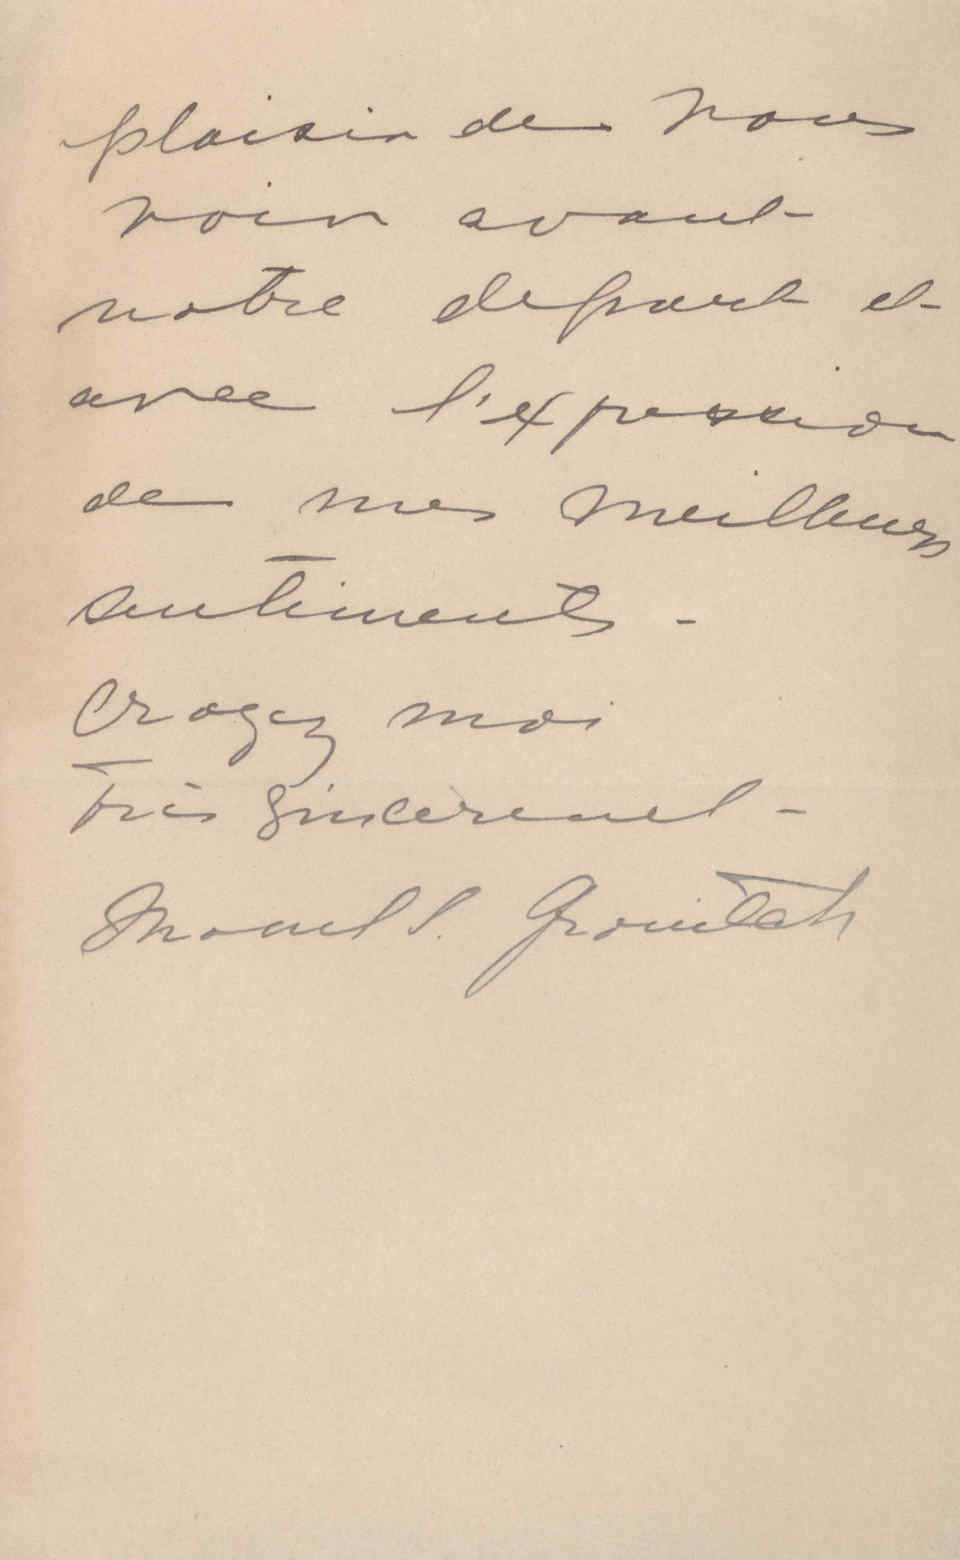 plaisir de vous
voir avant
notre depart et
avec l'expression
de mes meilleurs
sentiments -
Croyez moi
très sincerement -